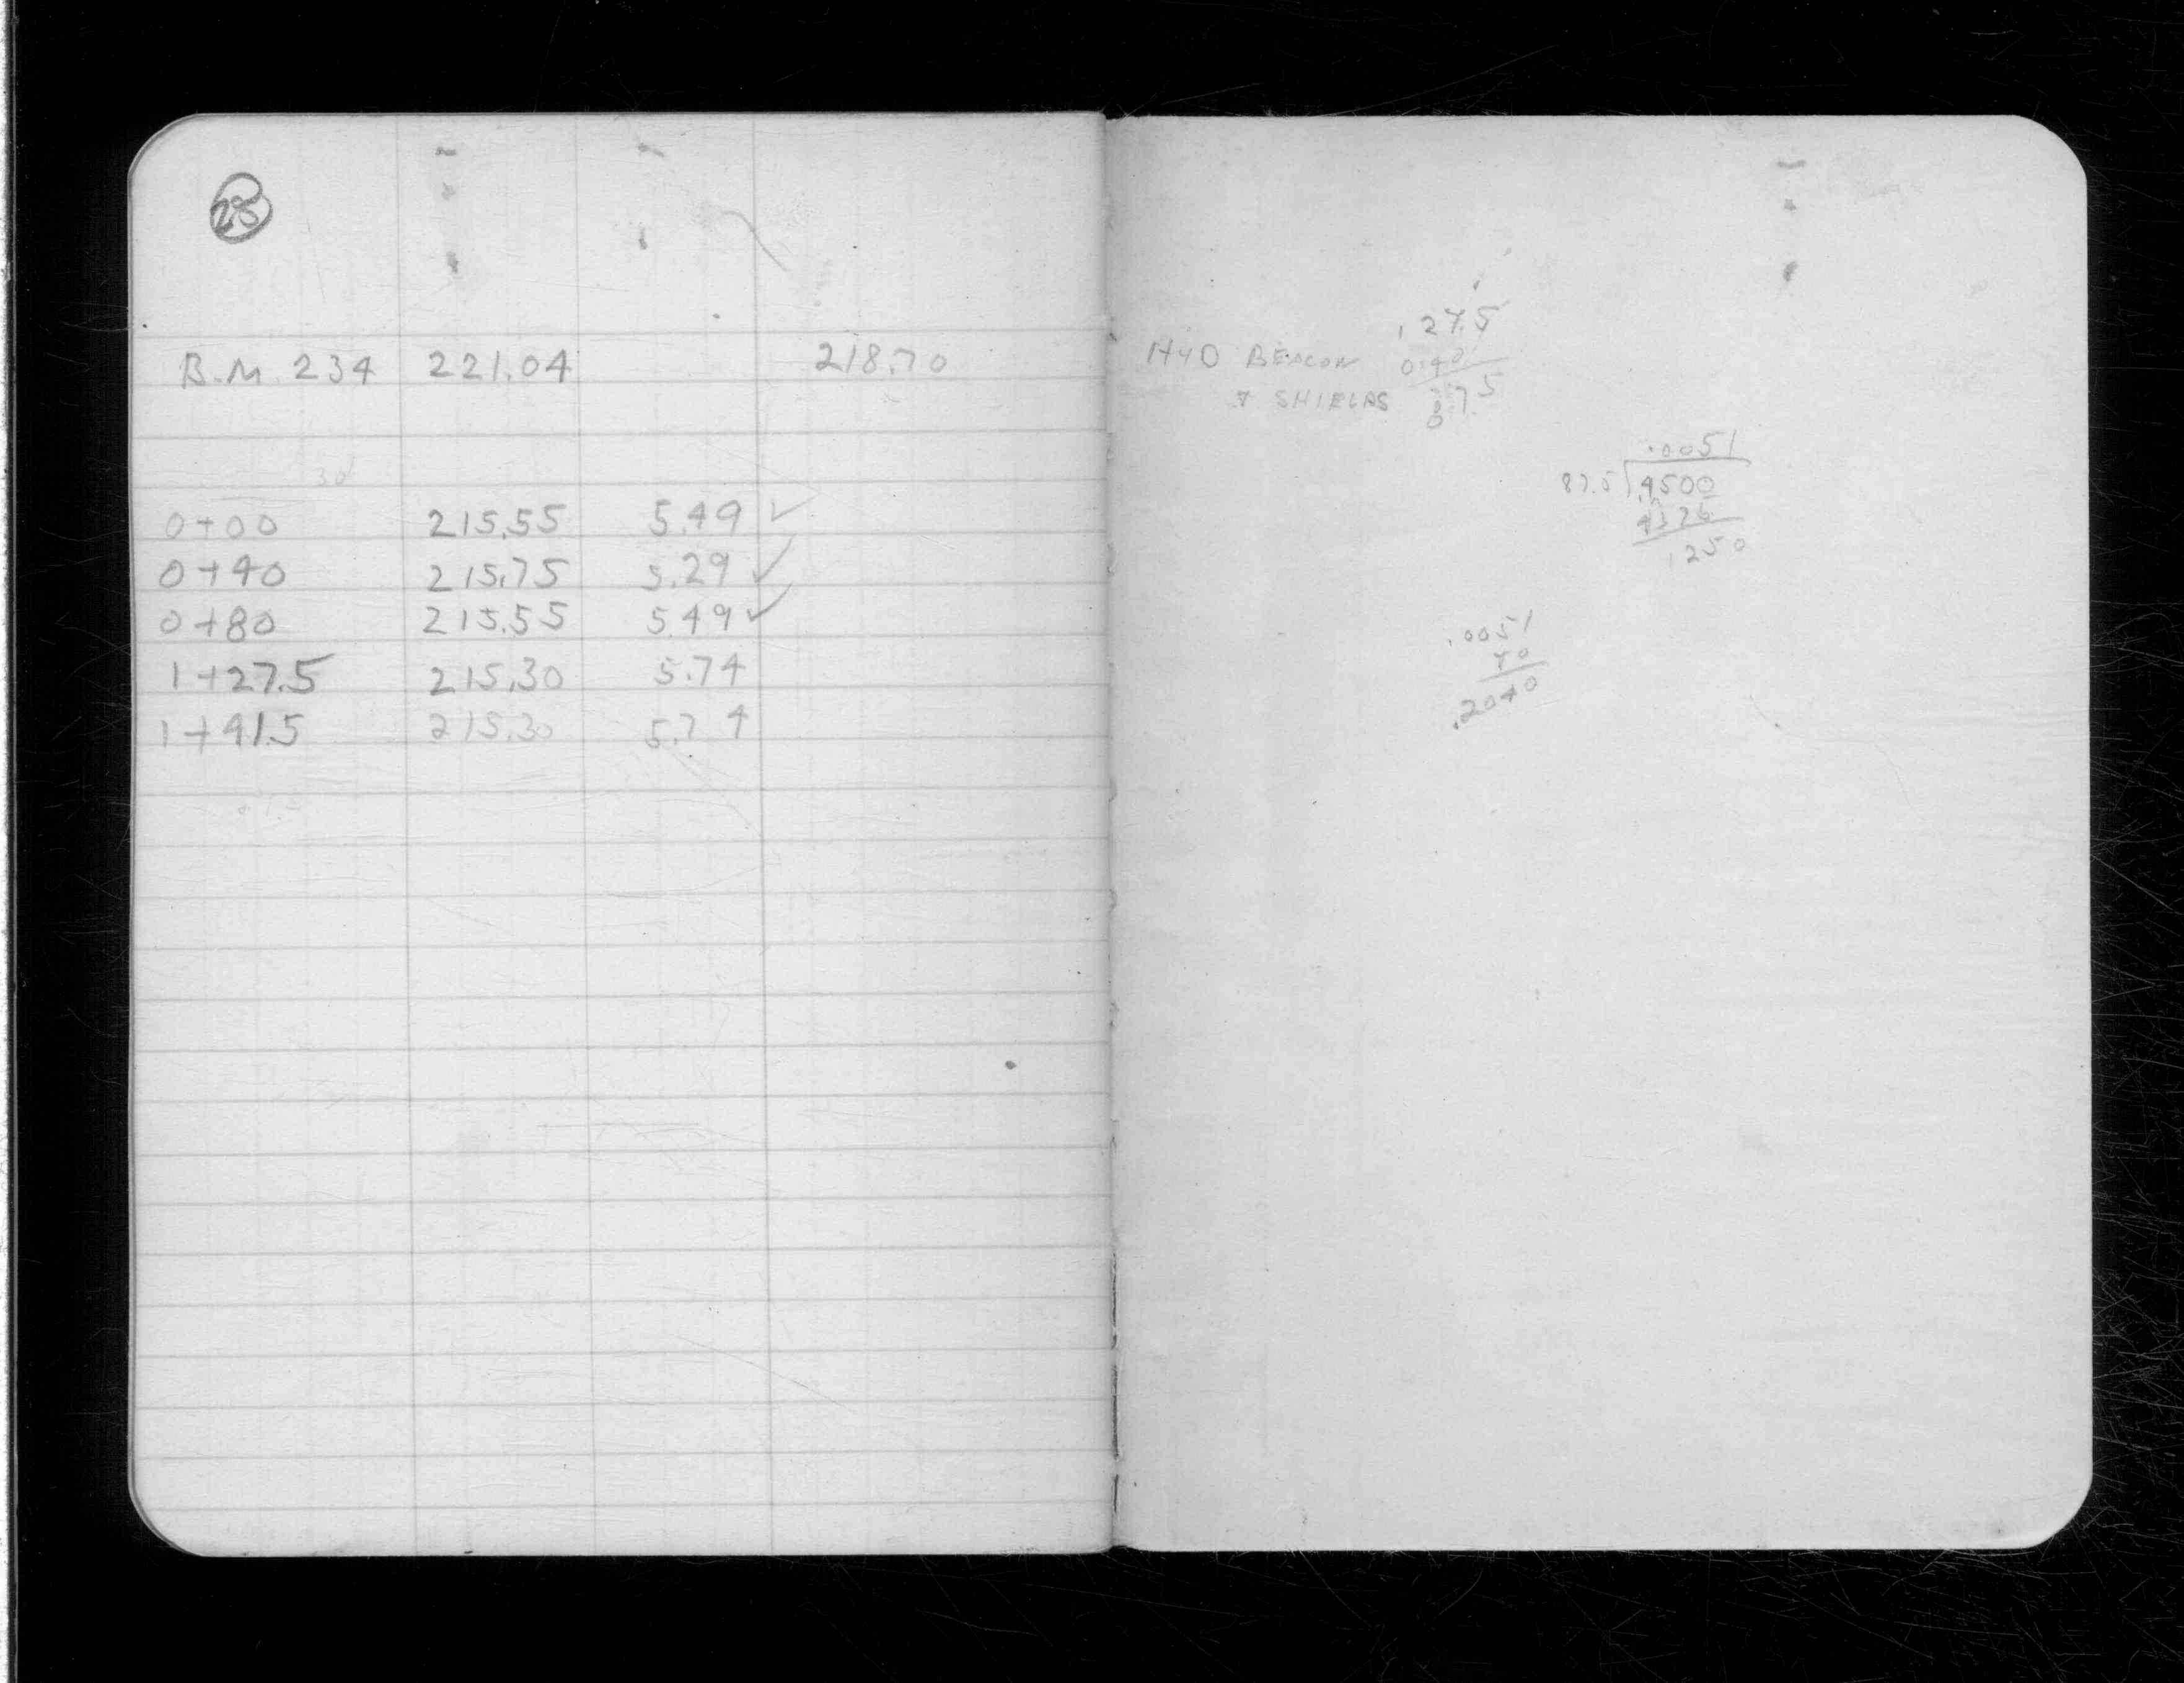 25
B.M. 234 221.04 218.70
30
0+00 215.55 5.49 ✓
0+40 215.75 5.29 ✓
0+80 215.55 5.49 ✓
1+27.5 215.30 5.74
1+41.5 215.30 5.74
127.5
HYD BEACON 0.40
& SHIELDS 87.5
.0051
87.5 .4500
4375
1250
.0051
40
.2040